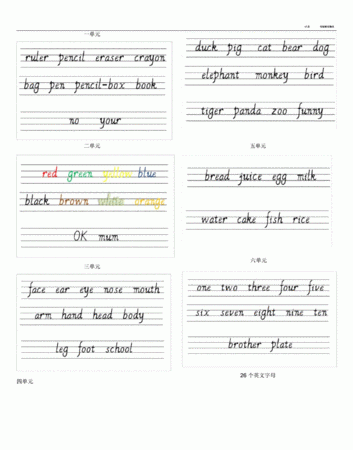 一单元
ruler pencil eraser crayon
bag pen pencil-box book
no your
二单元
red green yellow blue
black brown white orange
OK mum
三单元
face ear eye nose mouth
arm hand head body
leg foot school
四单元
duck pig cat bear dog
elephant monkey bird
tiger panda zoo funny
五单元
bread juice egg milk
water cake fish rice
六单元
one two three four five
six seven eight nine ten
brother plate
26 个英文字母